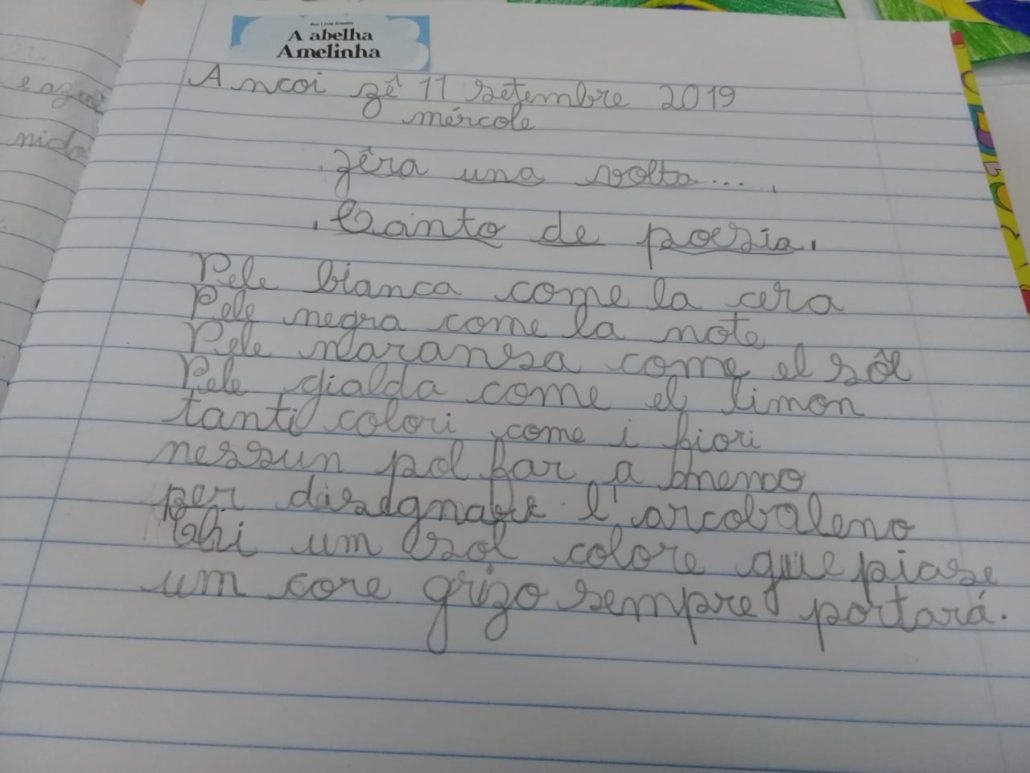 A abelha
Amelinha
Ancoi zê 11 setembre 2019
mércole
Zêra una volta....
Canto de poesia.
Pele bianca come la cera
Pele negra come la note
Pele naransa come el sôl
Pele gialda come el limon
tanti colori come i fiori
nessun pol far a meno
per disegnare l'arcobaleno
Chi um sol colore que piase
um core grizo sempre portará.
e azul